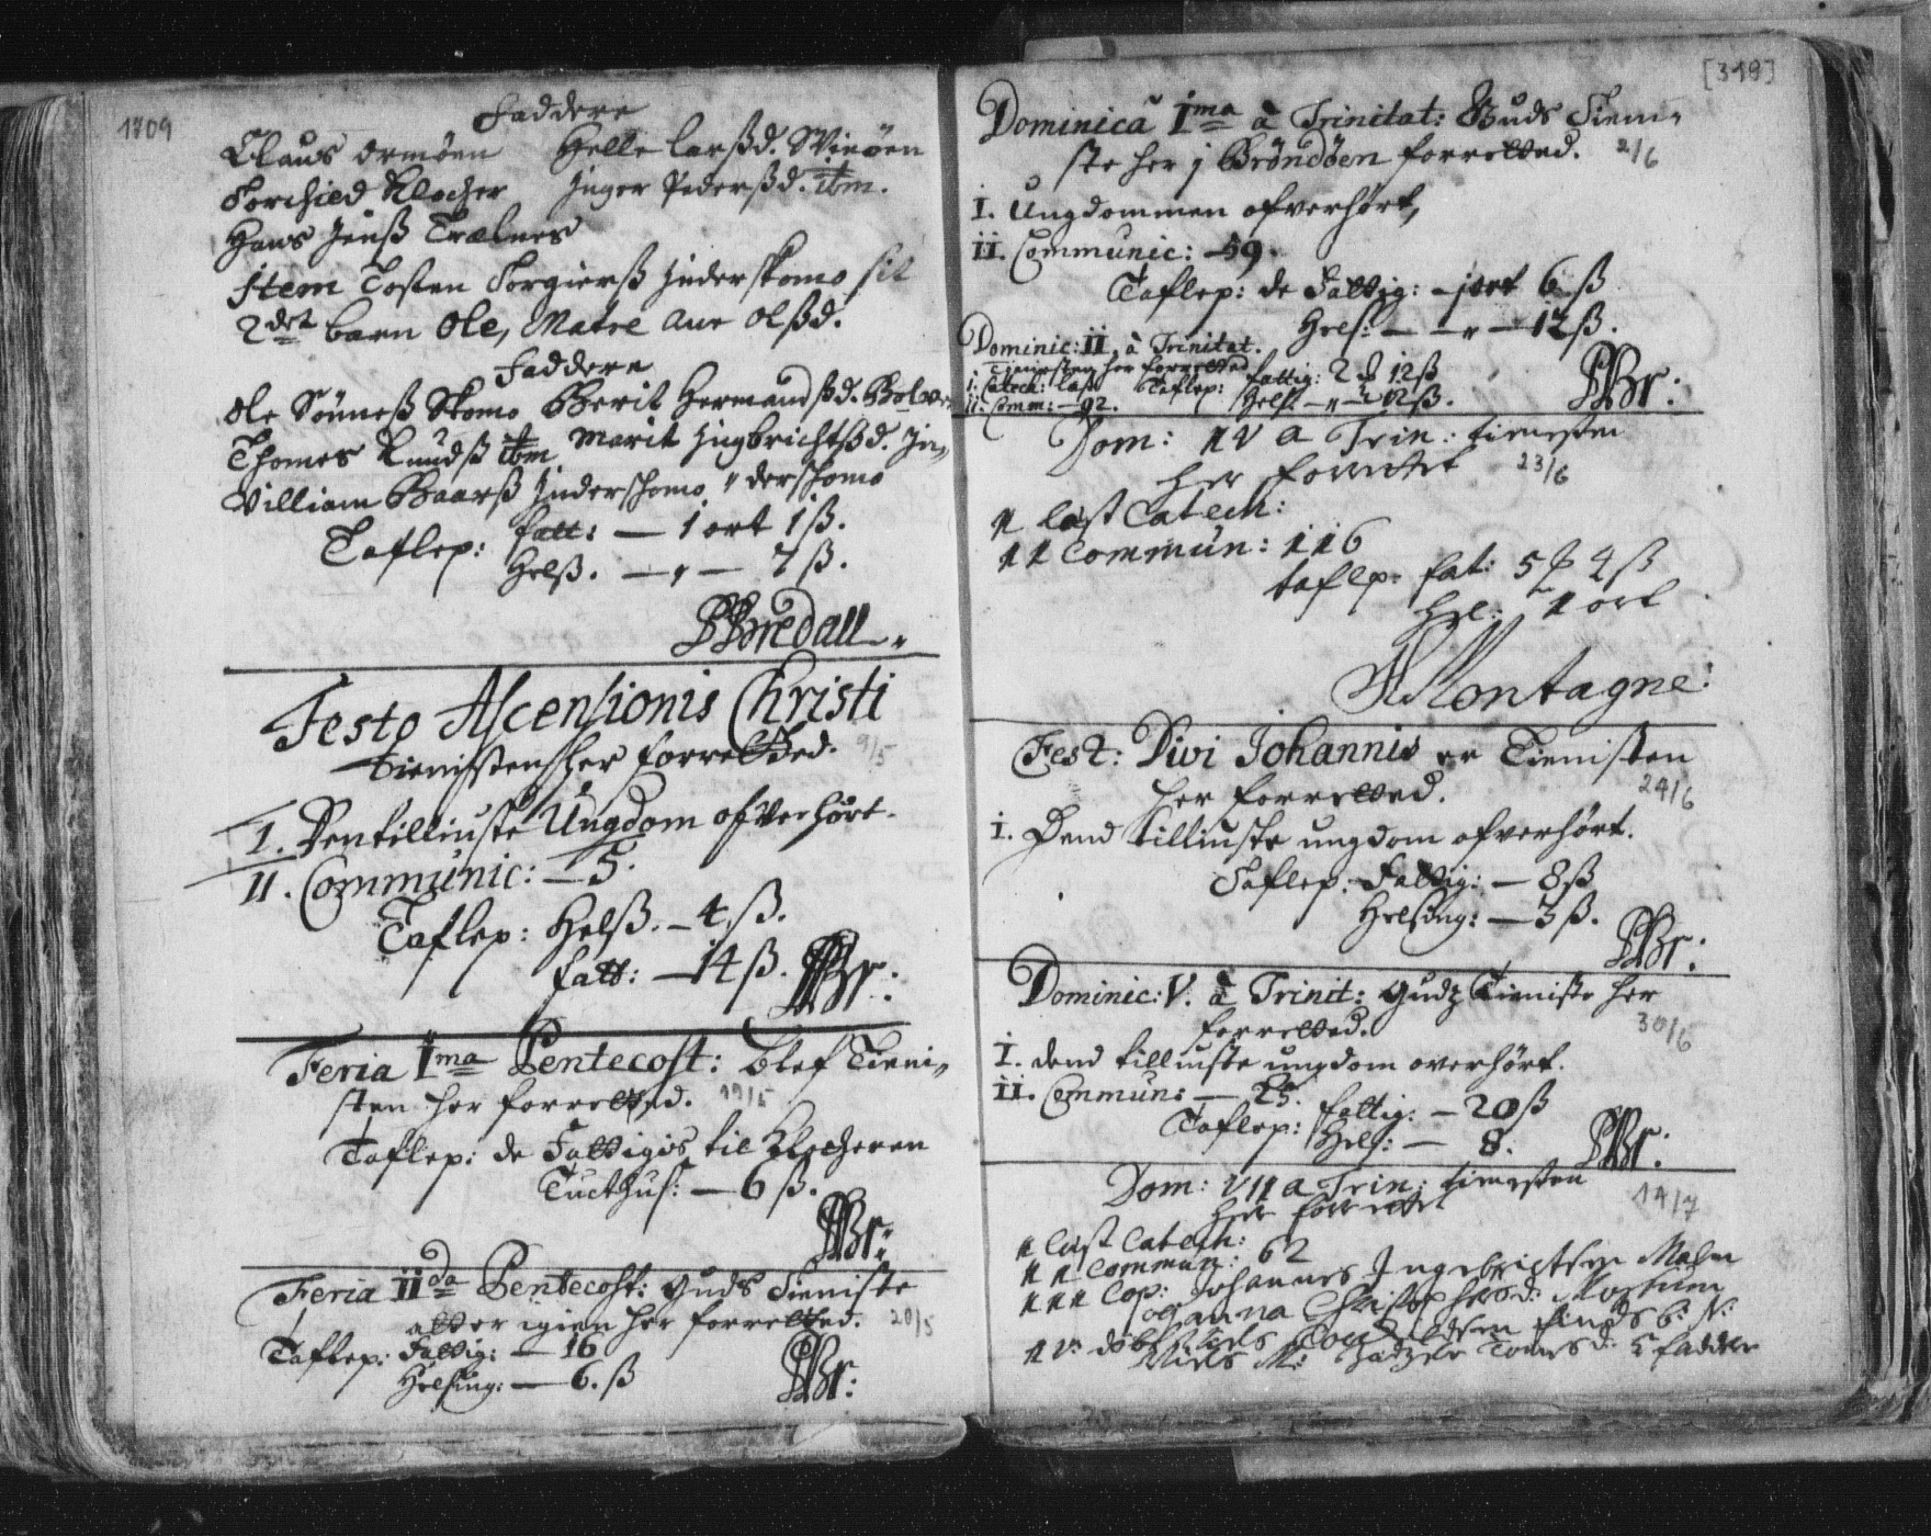 1709
Faddere
Claus Ormöen Helle Larßd. Svinöen
Torchied Klocher Inger Pederßd. ibm.
Hans Jenß Trælnes
Item Tosten Torgierß Inderskomo sit
2det barn Ole, Matre Ane Olßd.
Faddere
Ole Sönneß Skomo Berit Hermandsßd.
Thomes Knudß ibm Marit Ingbrichtßd. In-
Villiam Baarß Inderskomo derskomo
Taflep: fatt: — 1 ort 1 ß.
Helß. — „ — 7 ß.
PBredall
Festo Ascensionis Christi
tienisten her forretted. 9/5
I. Den tilliuste Ungdom ofverhört.
II. Communic: — 5.
Taflep: Helß. — 4 ß.
fatt: — 14 ß. PBr:
Feria Ima Pentecost: blef Tieni-
sten her forretted. 19/5
Taflep: de Fattigis til Klocheren
Tucthus: — 6 ß.
PBr:
Feria IIda Pentecost: Guds Tieniste
atter igien her forretted. 20/5
Taflep: Fattig: — 16
Helsing: — 6. ß PBr:
[319]
Dominica Ima à Trinitat: Guds Tieni-
ste her j Bröndöen forretted. 2/6
I. Ungdommen ofverhört,
II. Communic: — 59.
Taflep: de Fattig: — j ort 6 ß
Hels: — „ — 12 ß.
Dominic: II à Trinitat.
Tienesten her forretted
I. Catech: last Taflep: fattig: 2 12 ß
II. Comm: — 92. Hels: — „ — 12 ß. PBr:
Dom: IV a Trin: tienesten
her forrettet 23/6
I last Catech:
II Commun: 116
taflp: fat: 5 4 ß
Hel: 1 ort
Montagne
Fest: Divi Johannis er Tienisten
her forretted. 24/6
I. Dend tilliuste ungdom ofverhört.
Taflep: Fattig: — 8 ß
Helsing: — 3 ß.
PBr:
Dominic: V. à Trinit: Gudz Tieniste her
forretted. 30/6
I. dend tilliuste ungdom overhört.
II. Commun: — 25.
Taflep: fattig: — 20 ß
Hels: — 8. PBr:
Dom: VII a Trin: tienesten
her forrettet 14/7
I last Catech:
II Commun: 62
III Cop: Johannes Ingebrigtsen Malm
Johanna Christophersd:
IV: döbt Niels b: N:
Niels M: Tomesd: 5 fadder